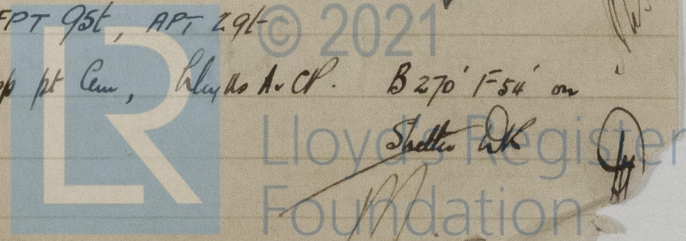 FPT 95t, APT 29t
pt Cem, Lloyds A & CP. B 270' F 54' on
Shelter Dk
LR
© 2021
Lloyd's Register
Foundation